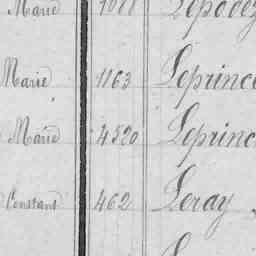 Marie
Marie 1163 Leprince
Marie 4520 Leprinc
Constant 462 Leray